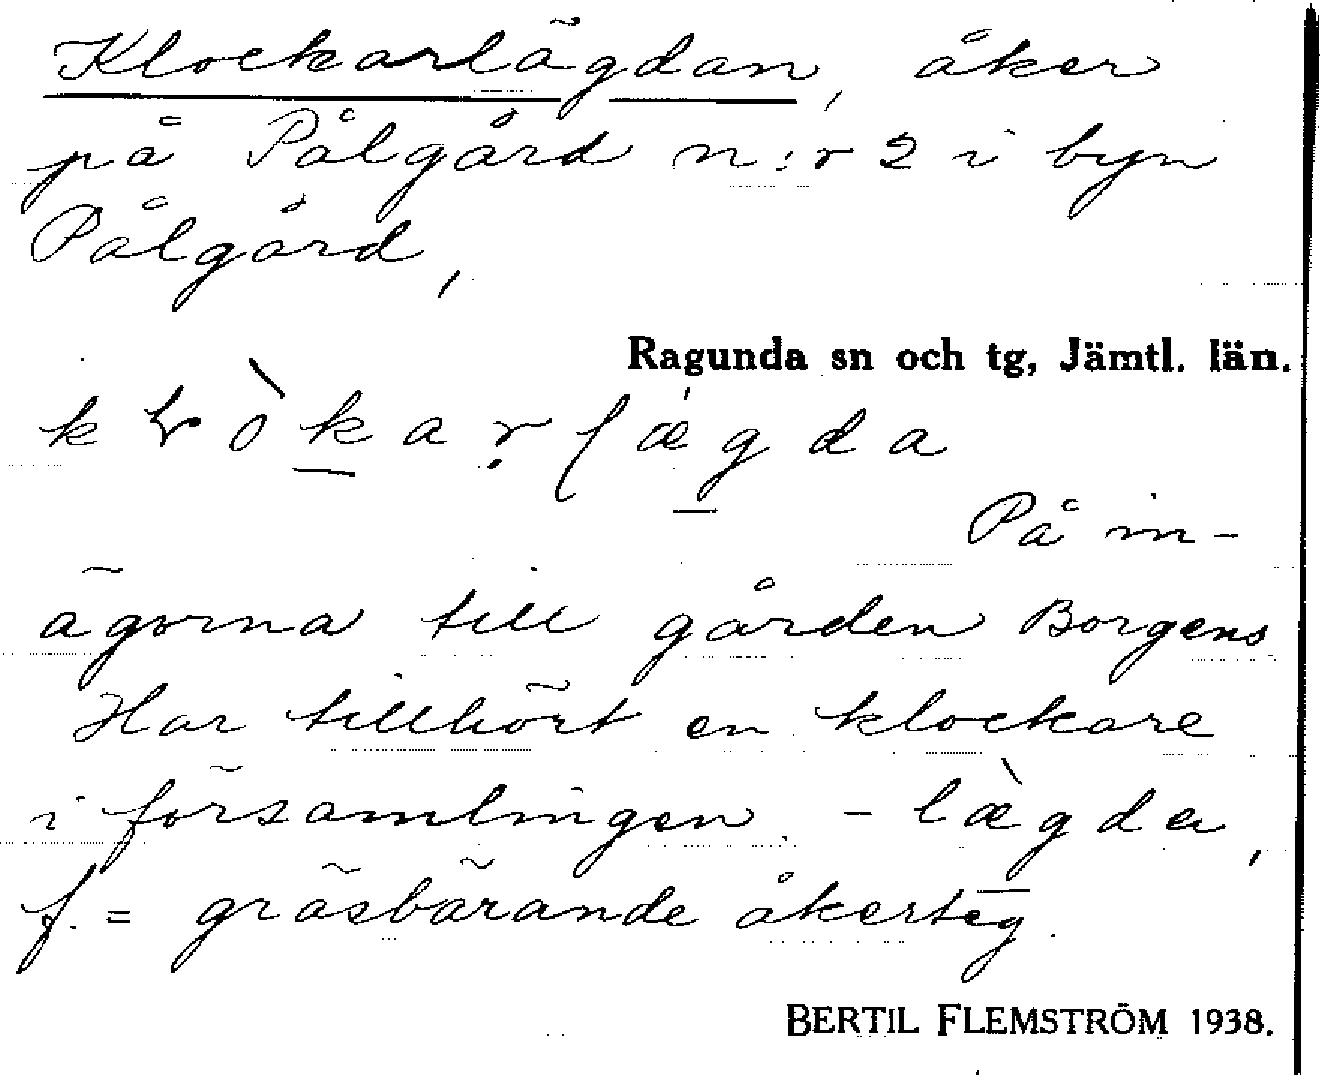 Klockarlägdan, åker
på Pålgård n:r 2 i byn
Pålgård,
Ragunda sn och tg, Jämtl. län.
På in-
ägorna till gården Borgens
Har tillhört en klockare
i församlingen. - lægda,
f. = gräsbärande åkerteg.
BERTIL FLEMSTRÖM 1938.